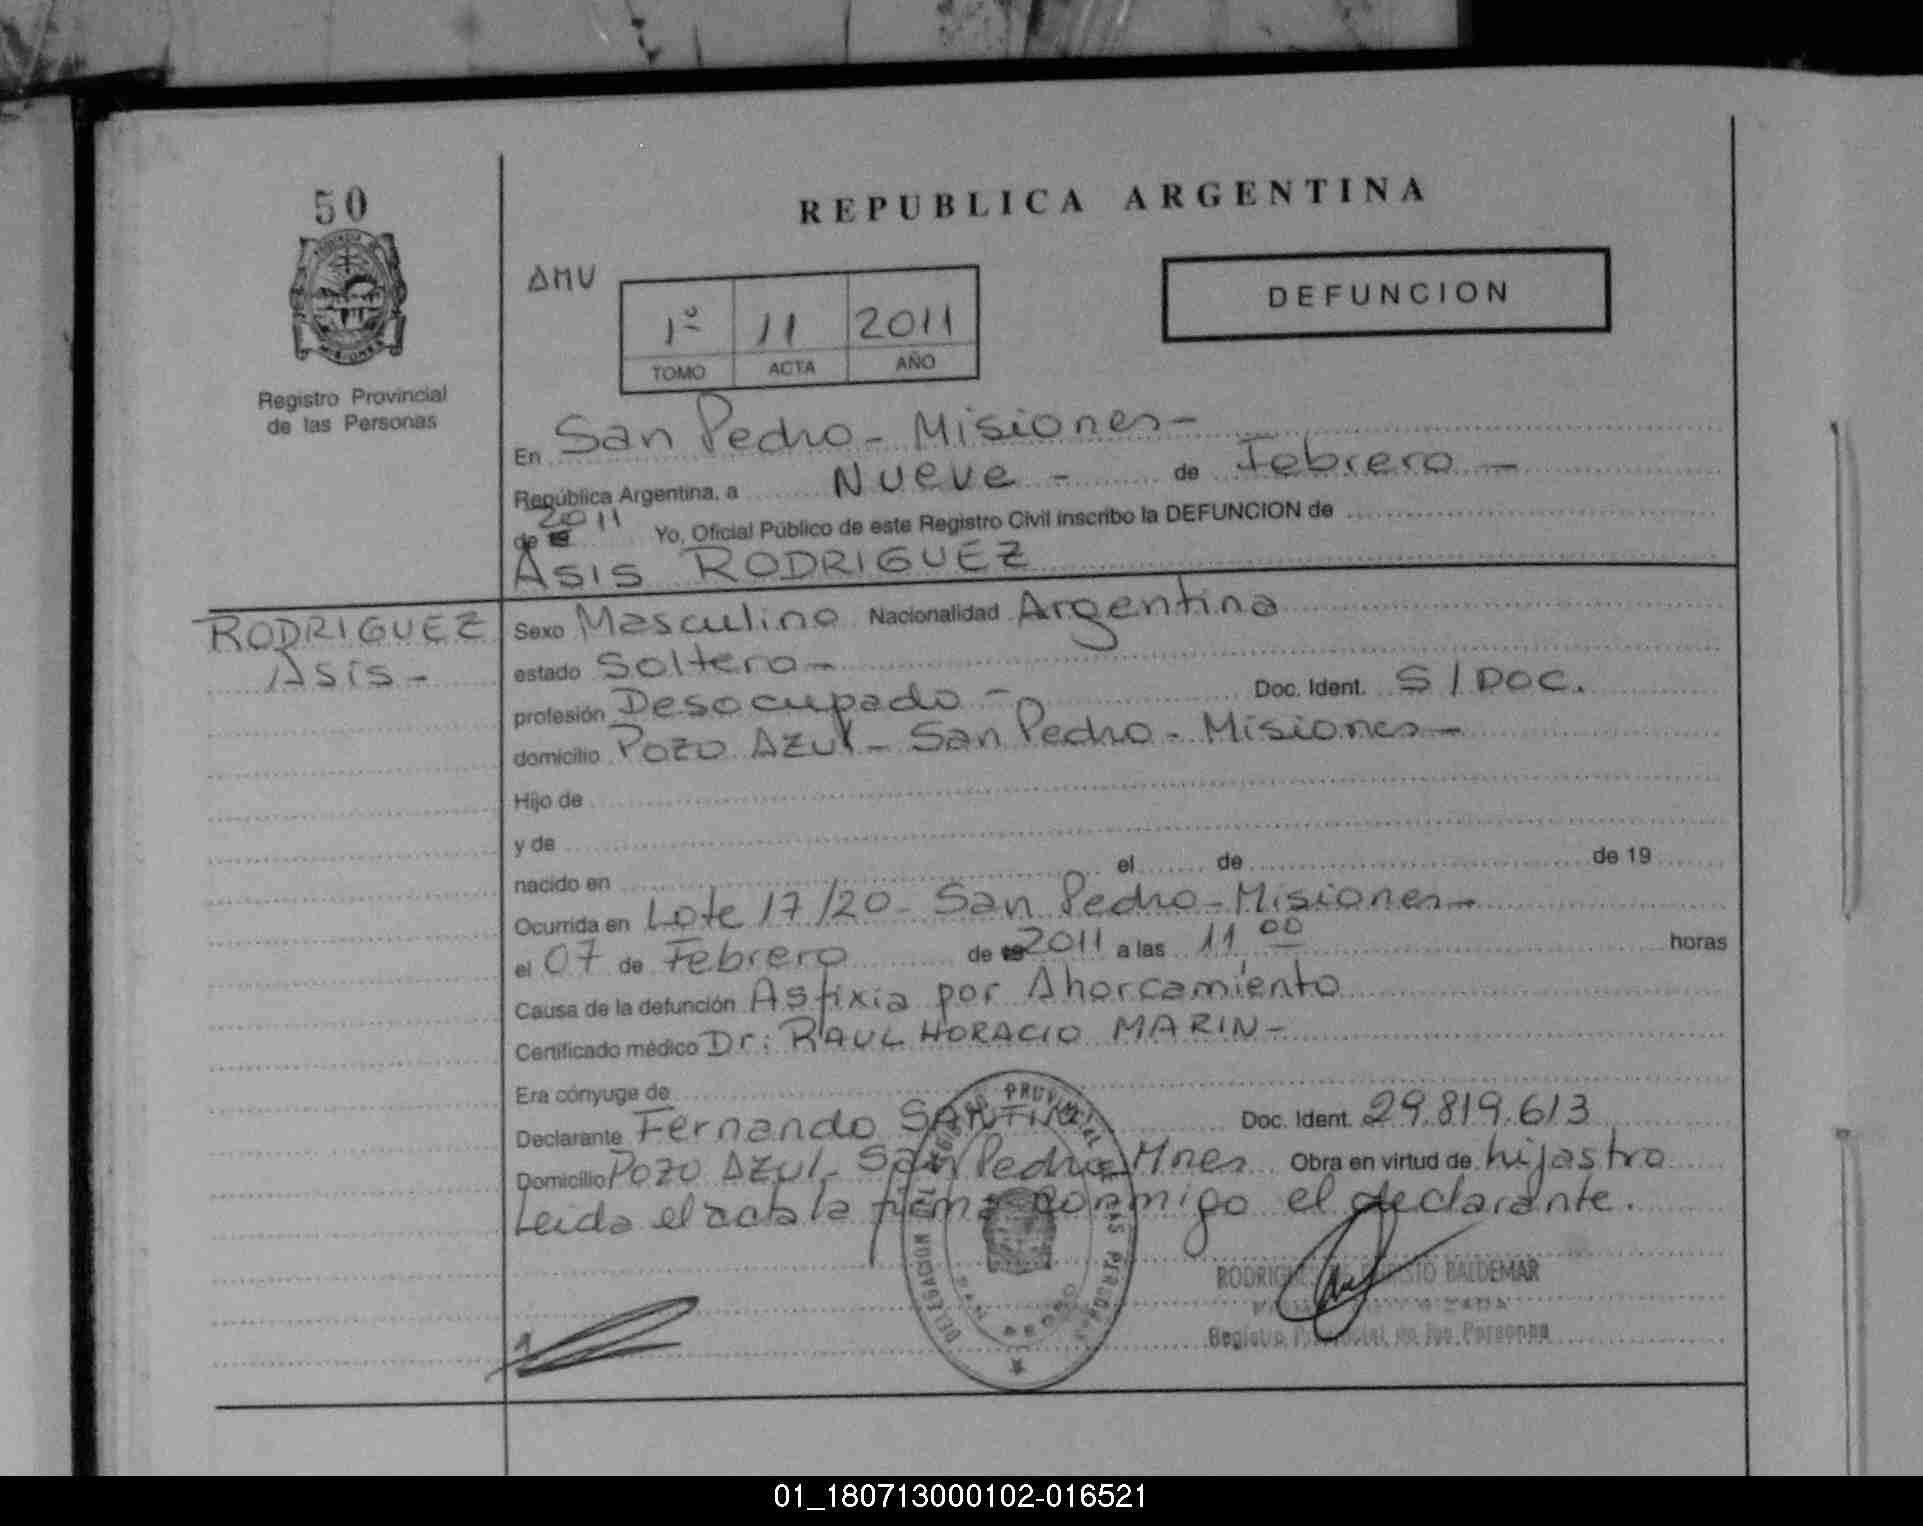 50
REPUBLICA ARGENTINA
AMU
DEFUNCION
1º 11 2011
TOMO ACTA AÑO
Registro Provincial
de las Personas
En San Pedro - Misiones -
República Argentina, a Nueve - de Febrero -
de 2011 Yo, Oficial Público de este Registro Civil inscribo la DEFUNCION de
Asis RODRIGUEZ
RODRIGUEZ
Asis -
Sexo Masculino Nacionalidad Argentina
estado Soltero -
profesión Desocupado - Doc. Ident. S/DOC.
domicilio Pozo Azul - San Pedro - Misiones -
Hijo de
y de
nacido en el de de 19
Ocurrida en Lote 17/20 - San Pedro - Misiones -
el 07 de Febrero de 2011 a las 11 00 horas
Causa de la defunción Asfixia por Ahorcamiento
Certificado médico Dr: RAUL HORACIO MARIN -
Era cónyuge de
Declarante Fernando Doc. Ident. 29.819.613
Domicilio Pozo Azul - San Pedro Mnes Obra en virtud de hijastro
Leida el acta la firma conmigo el declarante.
BALDEMAR
Registro Provincial de las Personas
01_180713000102-016521